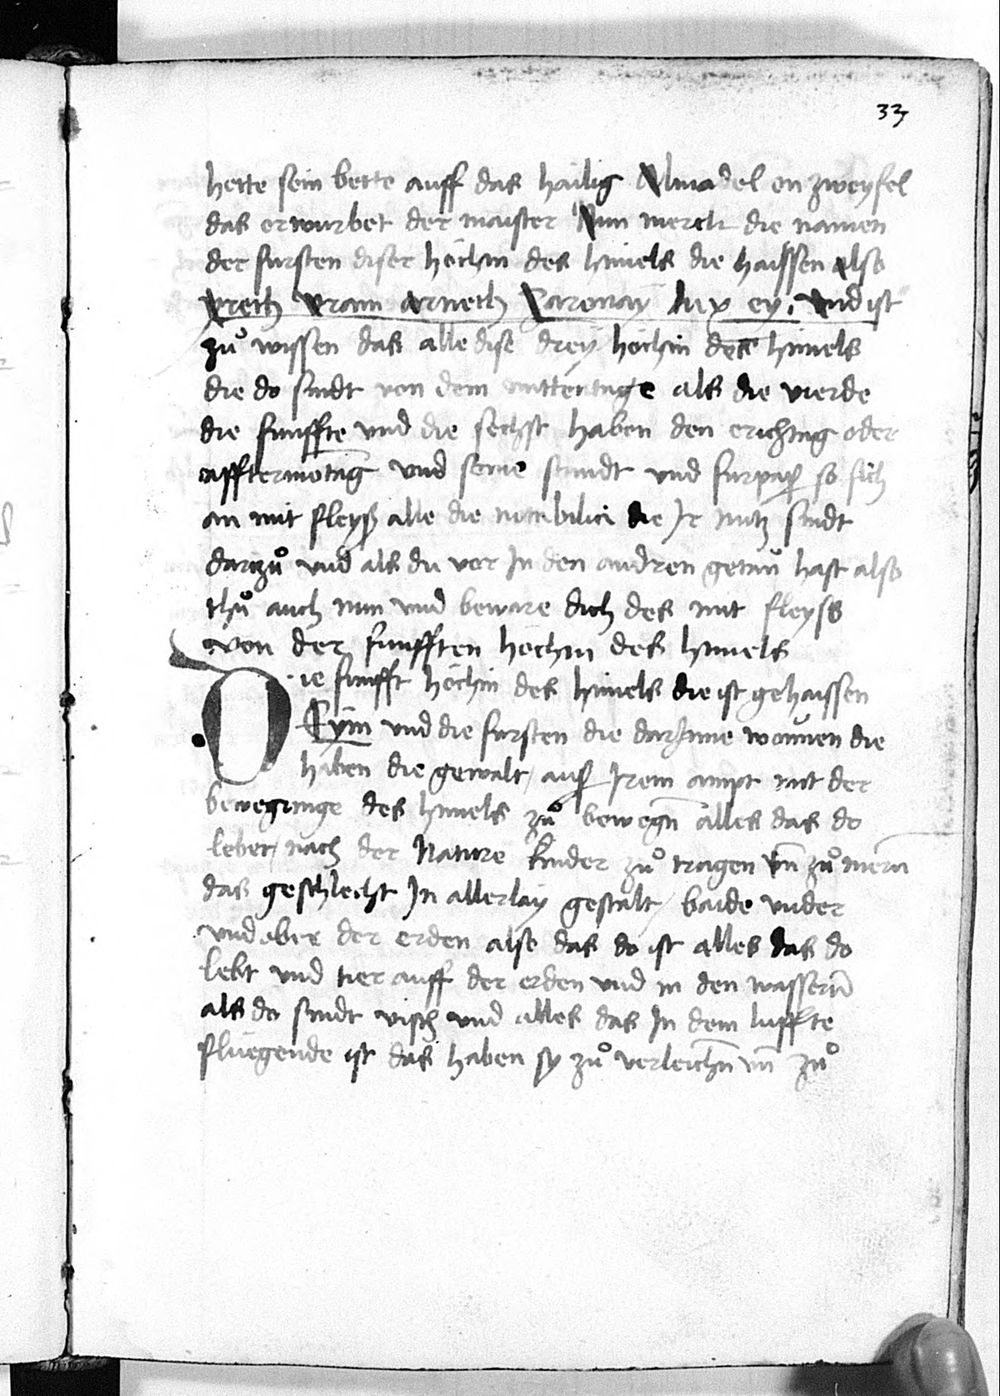 33
hette sein bette auff das hailig Almadel on zweyfel
das erwurbet der maister Nun merck die namen
der fursten diser höchin des himels die haissen also
und ist
zů wissen das alle dise drey höchin des himels
die do sindt von dem mittentage als die vierde
die funffte und die sechst haben den orichtng oder
afftermōtag und seine stundt und furpaß so sich
an mit fleyß alle die notabilici die Ir nutz sindt
darzů und als du vor In den andren getan hast also
thů auch nun und beware dich des mit fleyss
von der funfften höchin des himels
Die funfft höchin des himels die ist gehaissen
Tym und die fursten die darInne wonnen die
haben die gewalt auß Irem ampt mit der
bewegunge des himels zů bewegn̄ alles das do
lebet / nach der Nature kinder zů tragen vn̄ zů mern̄
das geschlecht In allerlay gestalt / baide under
und ober der erden also das do ist alles das do
lebt und tier auff der erden und in den wassern̄
als do sindt visch und alles das In dem luffte
fliegende ist das haben sy zů verleichn̄ vn̄ zů